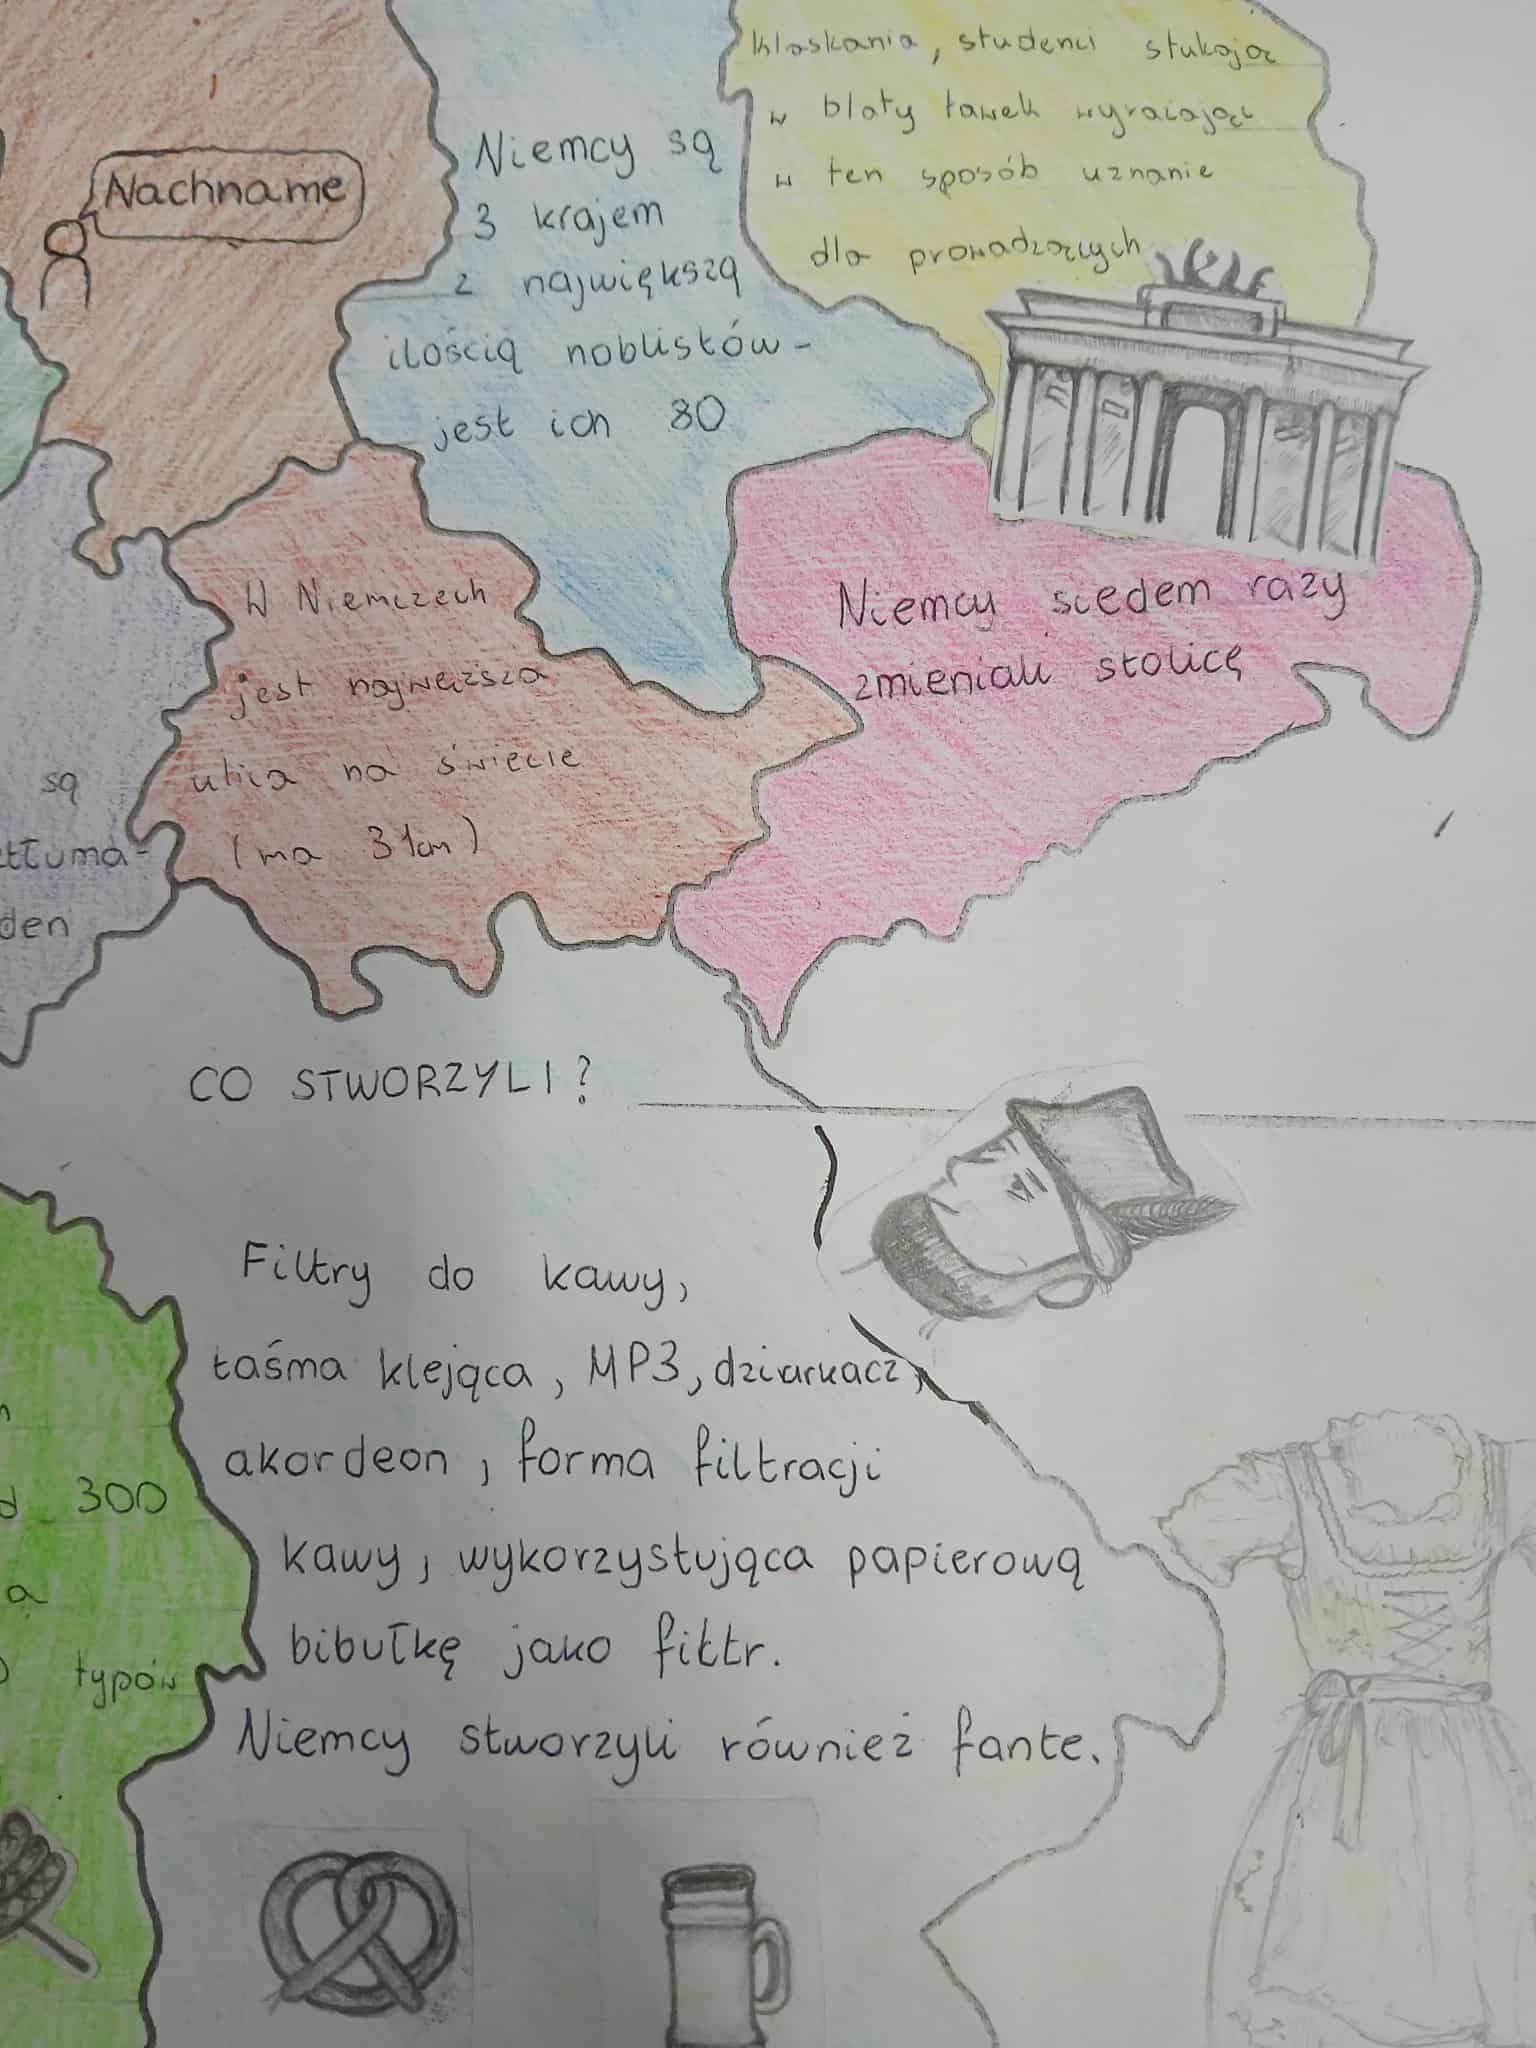 klaskania, studenci stukają
w blaty ławek wyrażając
w ten sposób uznanie
dla prowadzących
Nachname
Niemcy są
3 krajem
z największą
ilością noblistów-
jest ich 80
W Niemczech
jest najwęższa
ulica na świecie
(ma 31cm)
Niemcy siedem razy
zmieniali stolicę
są
tłuma-
den
CO STWORZYLI?
Filtry do kawy,
taśma klejąca, MP3, dziurkacz,
akordeon, forma filtracji
kawy, wykorzystująca papierową
bibułkę jako filtr.
Niemcy stworzyli również fantę.
300
a
typów